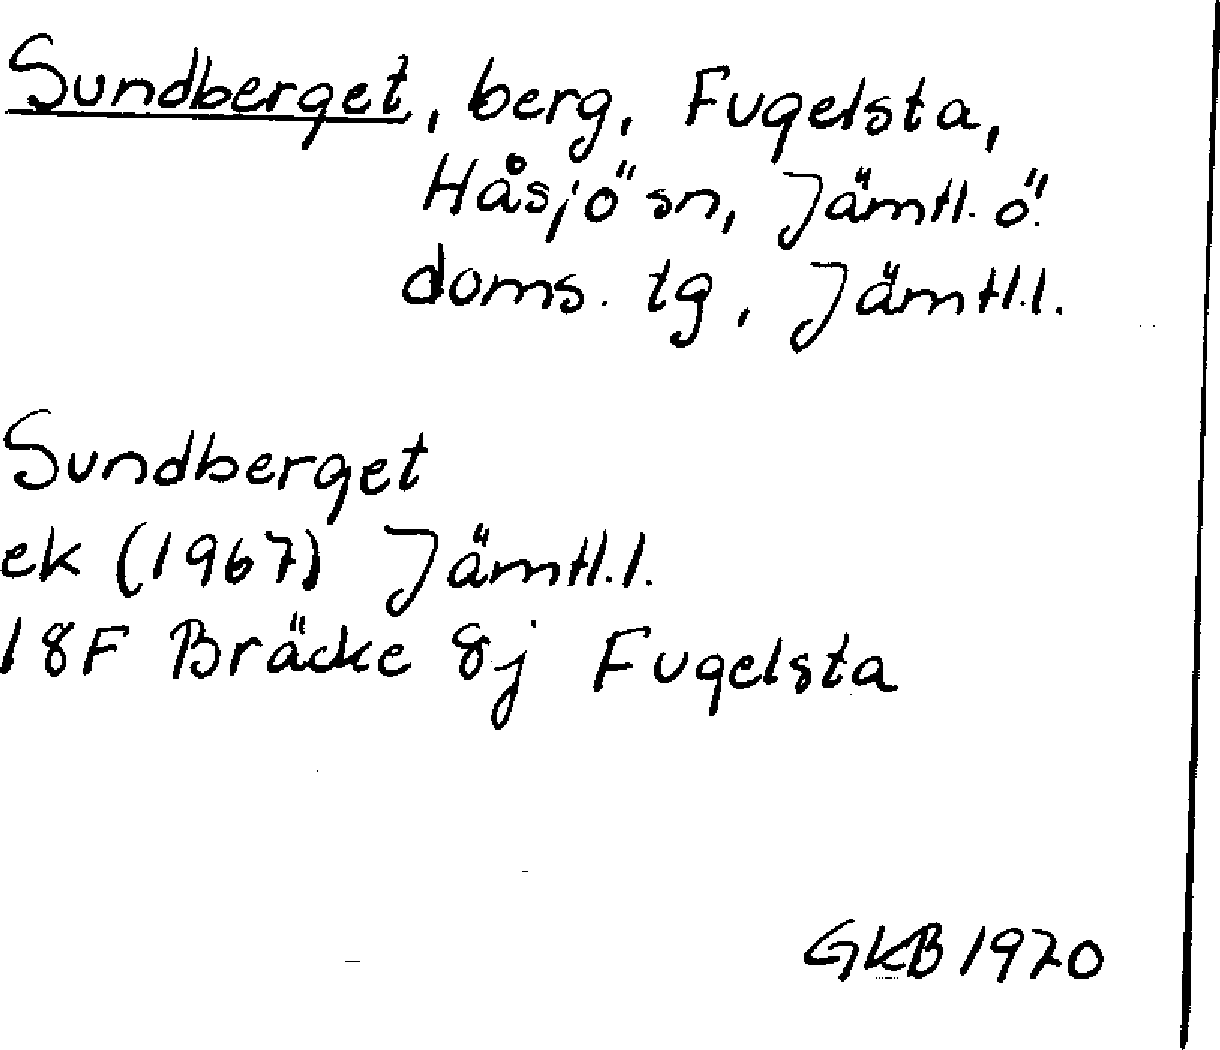 Sundberget, berg, Fugelsta,
Håsjö sn, Jämtl. ö.
doms. tg, Jämtl.l.
Sundberget
ek (1967) Jämtl.l.
18F Bräcke 8j Fugelsta
GKB 1970